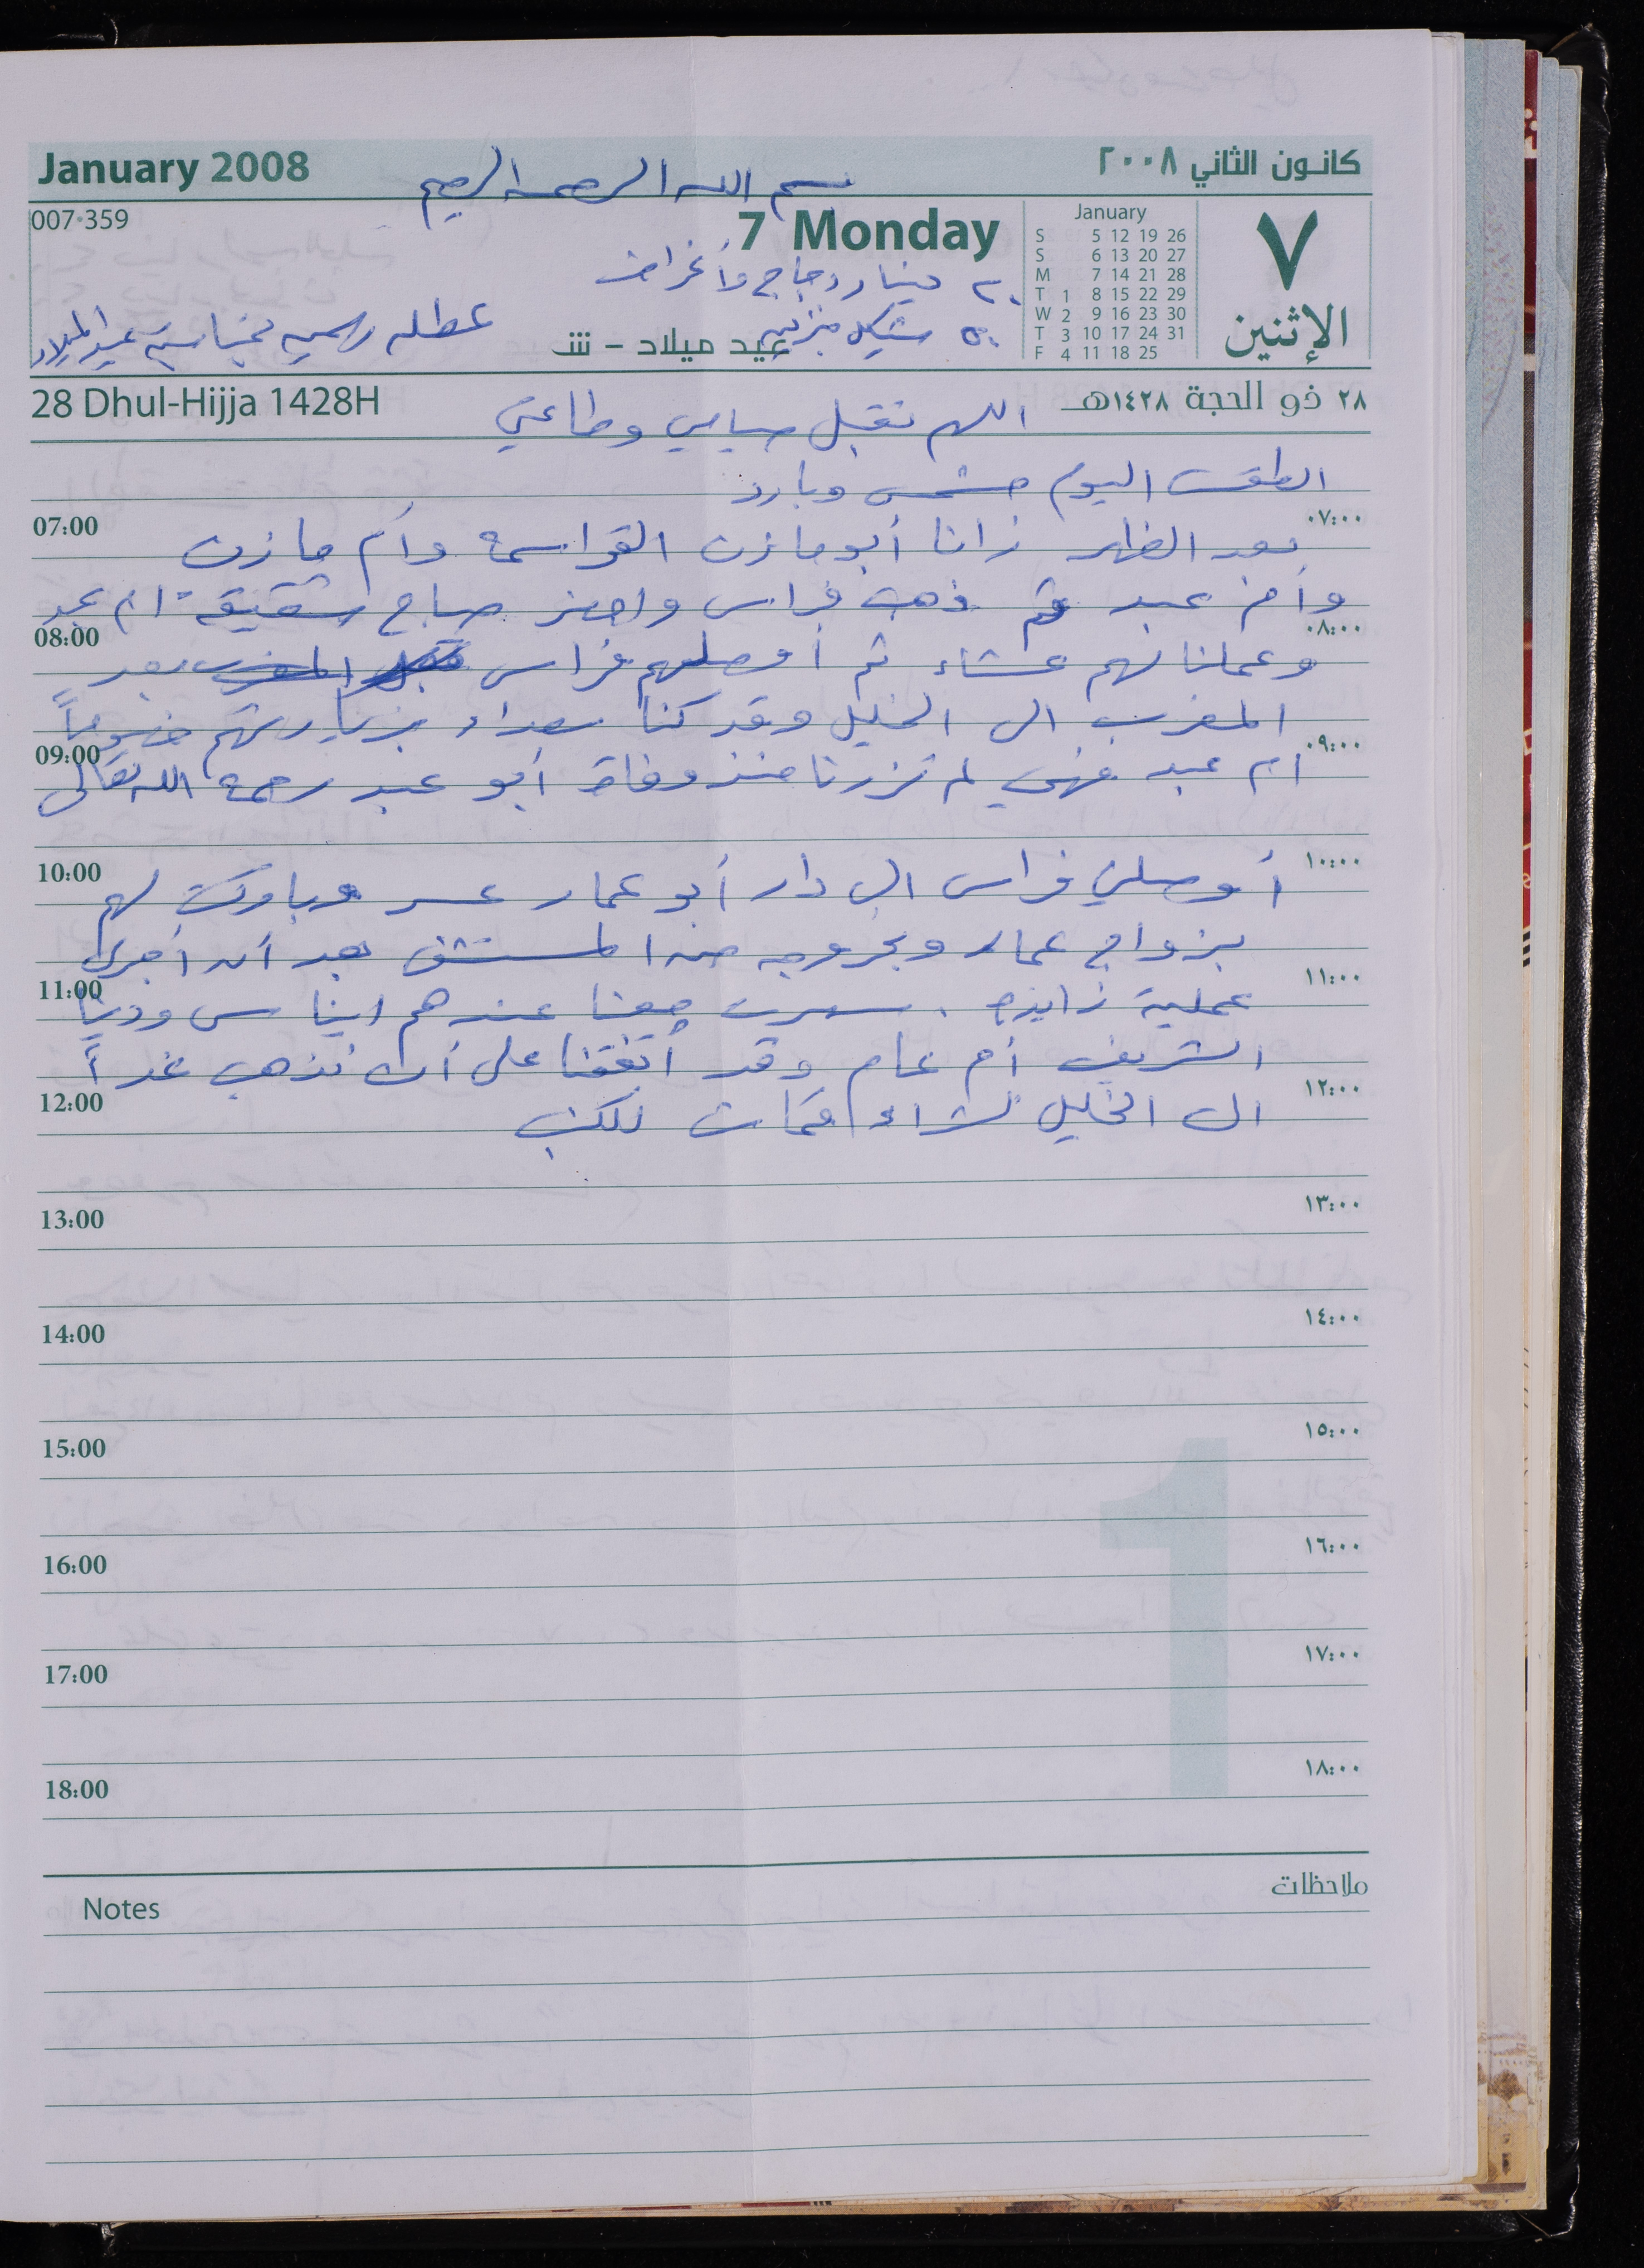 January 2008
بسم الله الرحمن الرحيم
كانون الثاني ٢٠٠٨
007-359
7 Monday
January
S 5 12 19 26
S 6 13 20 27
M 7 14 21 28
T 1 8 15 22 29
W 2 9 16 23 30
T 3 10 17 24 31
F 4 11 18 25
٧
الإثنين
٢٠ دينار دجاج وأغراض
٥٠ شيكل بنزين
عيد ميلاد - ش
عطله رسميه بمناسبة عيد الميلاد
28 Dhul-Hijja 1428H
٢٨ ذو الحجة ١٤٢٨هـ
اللهم تقبل صيامي وطاعتي
الطقس اليوم مشمس وبارد
07:00 ٠٧:٠٠
بعد الظهر زانا أبو مازن القواسمة وأم مازن
وأم عبد ثم ذهب فراس واحضر صباح شقيقة أم عبد
08:00 ٠٨:٠٠
وعملنا لهم عشاء ثم أوصلهم فراس قبل المغرب بعد
المغرب الى الخليل وقد كنا سعداء بزيارتهم خصوصاً
09:00 ٠٩:٠٠
أم عبد فهي لم تزرنا منذ وفاة أبو عبد رحمه الله تعالى
10:00 ١٠:٠٠
أوصلني فراس الى دار أبو عمار وباركت لهم
بزواج عمار وبخروجه من المستشفى بعد أن أجرى
11:00 ١١:٠٠
عملية زايدة . سهرت معنا عندهم ايناس ودينا
الشريف أم عام وقد أتفقنا على أن نذهب غداً
12:00 ١٢:٠٠
الى الخليل لشراء للكنب
13:00 ١٣:٠٠
14:00 ١٤:٠٠
15:00 ١٥:٠٠
16:00 ١٦:٠٠
17:00 ١٧:٠٠
18:00 ١٨:٠٠
1
Notes
ملاحظات